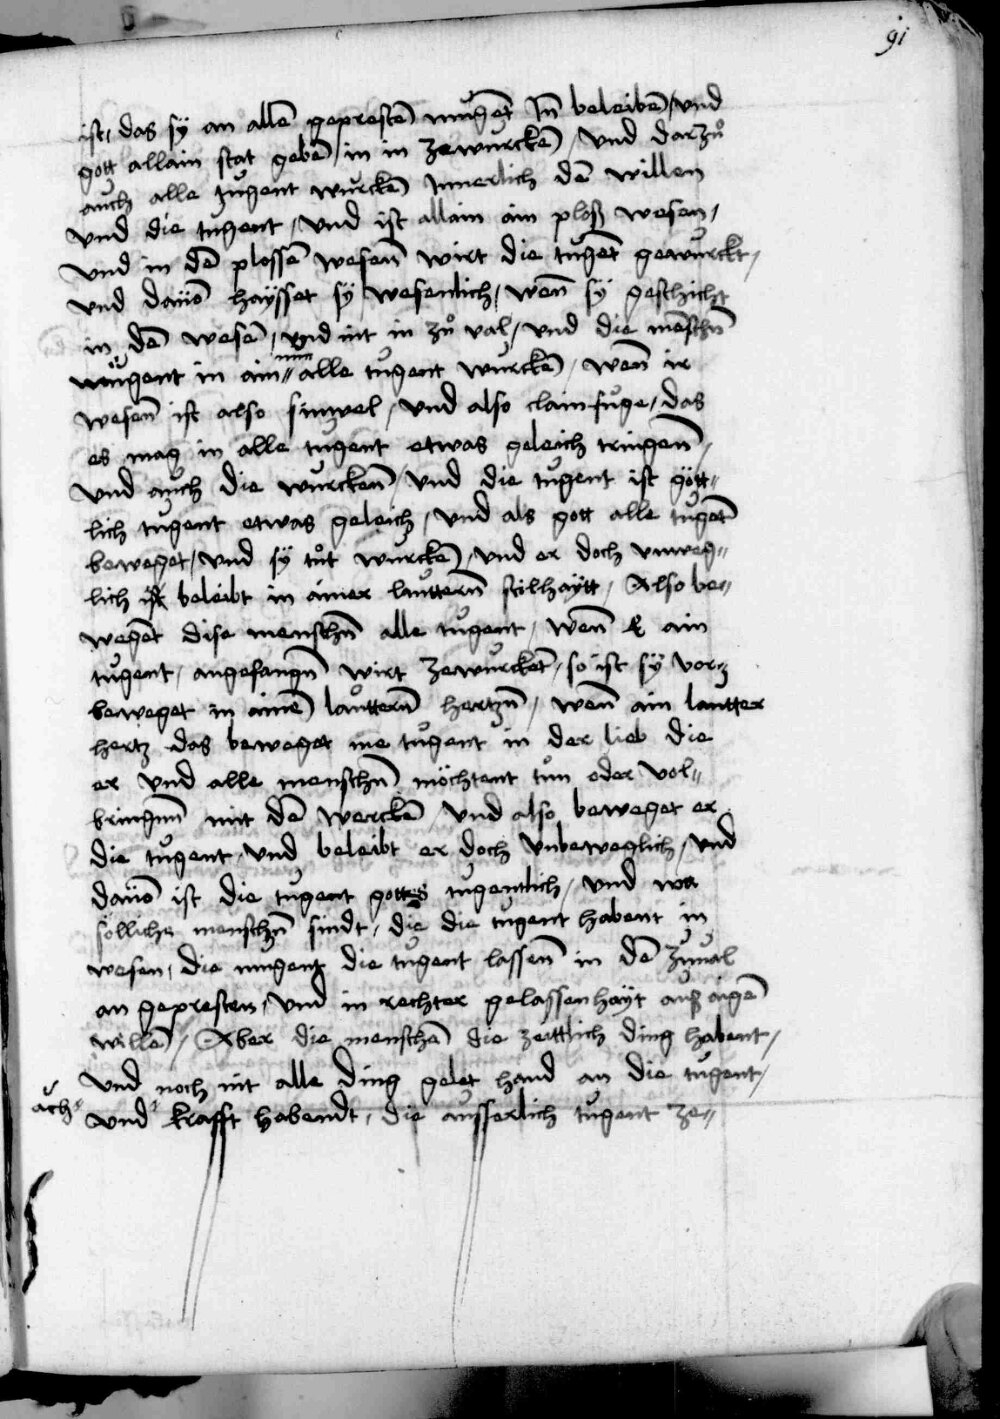 91
ist / das sy an allē geprestē mugēt Jn̄ beleibē / und
gott allain stat gebē / in in zewürckē / Vnd darzů
auch alle tugent würckē Jnnerlich dē willen
Vnd die tugent / Vnd ist allain ain ploß wesen /
Vnd in dē plossē wesen̄ wirt die tugēt gewürckt /
Vnd dauō haÿsset sy wesenlich / wen̄ sy geschicht
in dē wesē / vnd nit in zů val / Vnd die mēschn̄
mügent in ain // alle tugent würckē / wen̄ ir
wesen̄ ist also simwel / Vnd also clainfüge / das
es mag in alle tugent etwas geleich tringen̄ /
Vnd auch die würcken̄ / Vnd die tugent ist gött //
lich tugent etwas geleich / Vnd als gott alle tugēt
beweget / Vnd sy tůt würckē / Vnd er doch vnweg //
lich beleibt in ainer lauttern̄ stilhaÿtt / Also be //
wegēt dise menschn̄ alle tugent / Wen̄ ain
tugent / angefangn̄ wirt zewürckēt / so ist sy vor
beweget in ainē lauttern̄ hertzn̄ / wen̄ ain lautter
hertz das beweget me tugent in der lieb die
er Vnd alle menschn̄ möchtent tůn oder vol //
bringnn̄ mit dē werckē / Vnd also beweget er
die tugent / Vnd beleibt er doch Vnbeweglich / Vnd
dauō ist die tugent gottes tugentlich / Vnd wa
söllich menschn̄ sindt / die die tugent habent in
wesen / die mugent die tugent lassen̄ in dē zůual
an gepresten / Vnd in rechter gelassenhaÿt auß aigē
willē / Aber die menschē die zeittlich ding habent /
Vnd noch nit alle ding gelet hand an die tugent /
ach Vnd krafft habendt / die ausserlich tugent ze //